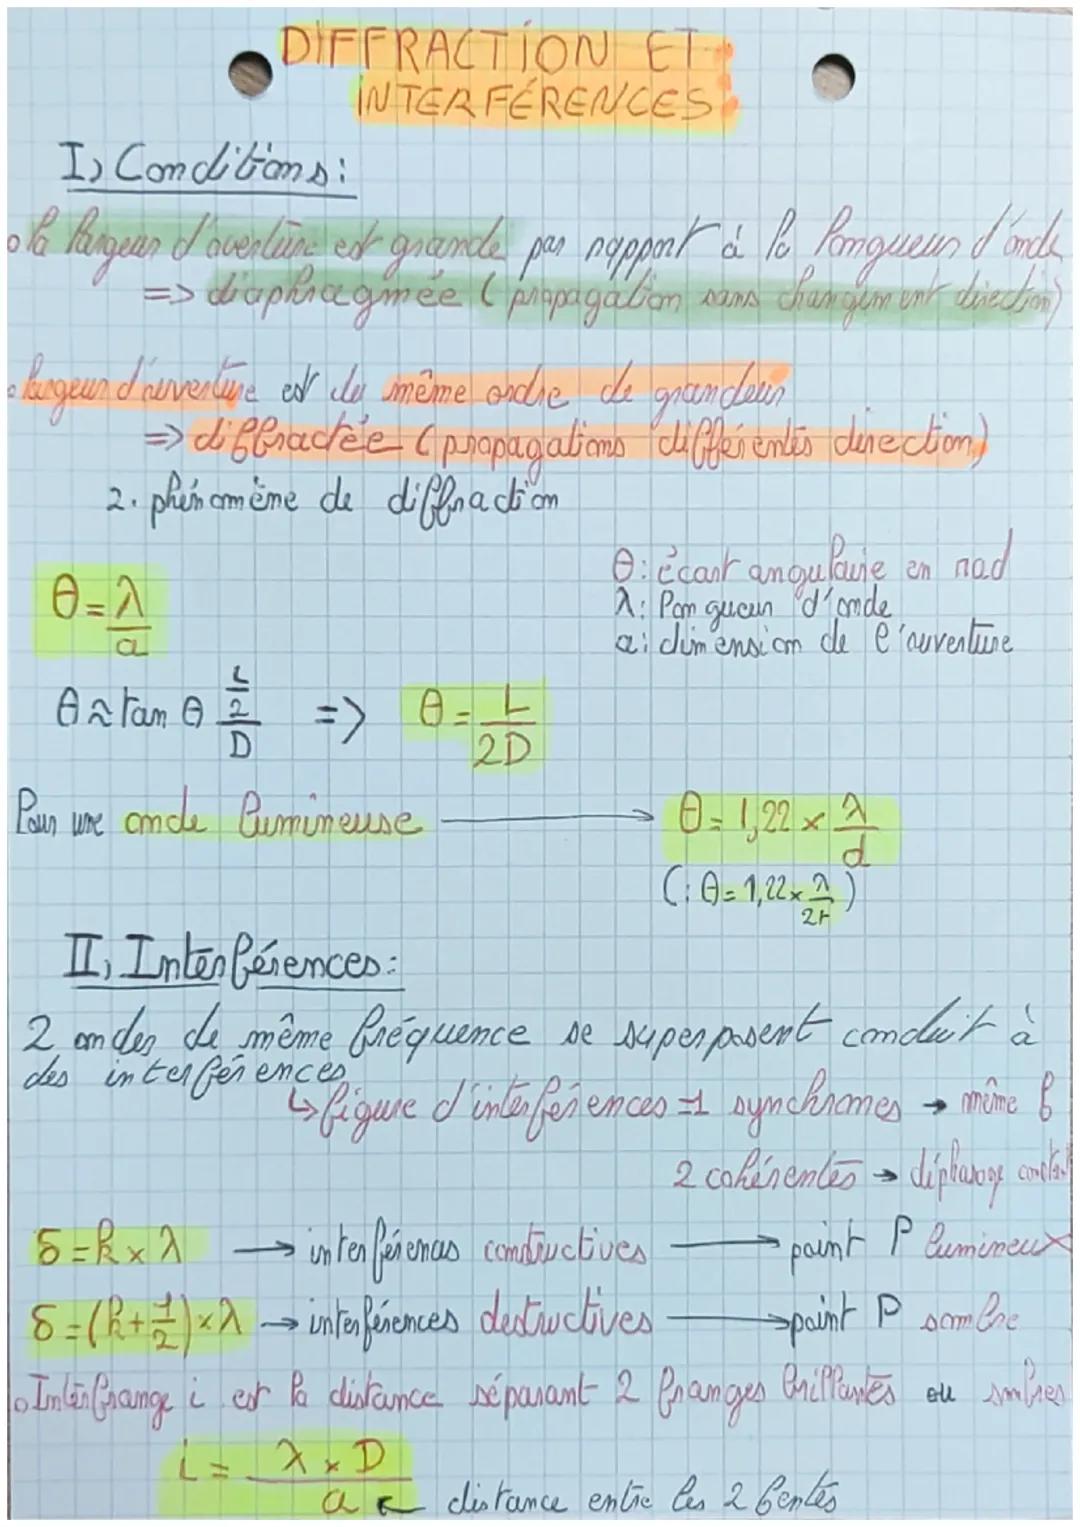 DIFFRACTION ET
INTERFÉRENCES
I) Conditions:
o la largeur d'ouverture est grande par rapport à la longueur d'onde
=> diaphragmée (propagation sans changement direction)
o largeur d'ouverture est du même ordre de grandeur
=> diffractée (propagations différentes direction)
2. phénomène de diffraction
θ = λ/a
θ: écart angulaire en rad
λ: longueur d'onde
a: dimension de l'ouverture
θ ≈ tan θ (L/2)/D => θ = L/2D
Pour une onde lumineuse → θ = 1,22 × λ/d
(: θ = 1,22 × λ/2r)
II) Interférences:
2 ondes de même fréquence se superposent conduit à
des interférences
↳ figure d'interférences = 1 synchrones → même f
2 cohérentes → déphasage constant
δ = k × λ → interférences constructives → point P lumineux
δ = (k + 1/2) × λ → interférences destructives → point P sombre
o Interfrange i est la distance séparant 2 franges brillantes ou sombres
i = λ × D / a ← distance entre les 2 fentes